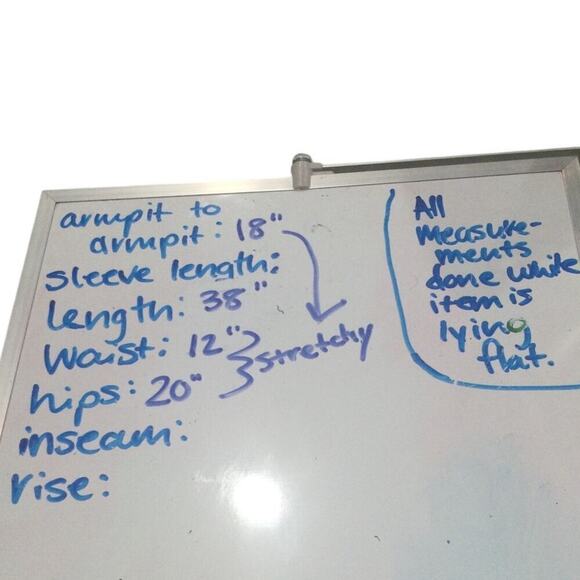 armpit to
armpit: 18"
sleeve length:
Length: 38"
Waist: 12"
hips: 20"
stretchy
inseam:
rise:
All
measure-
ments
done while
item is
lying
flat.